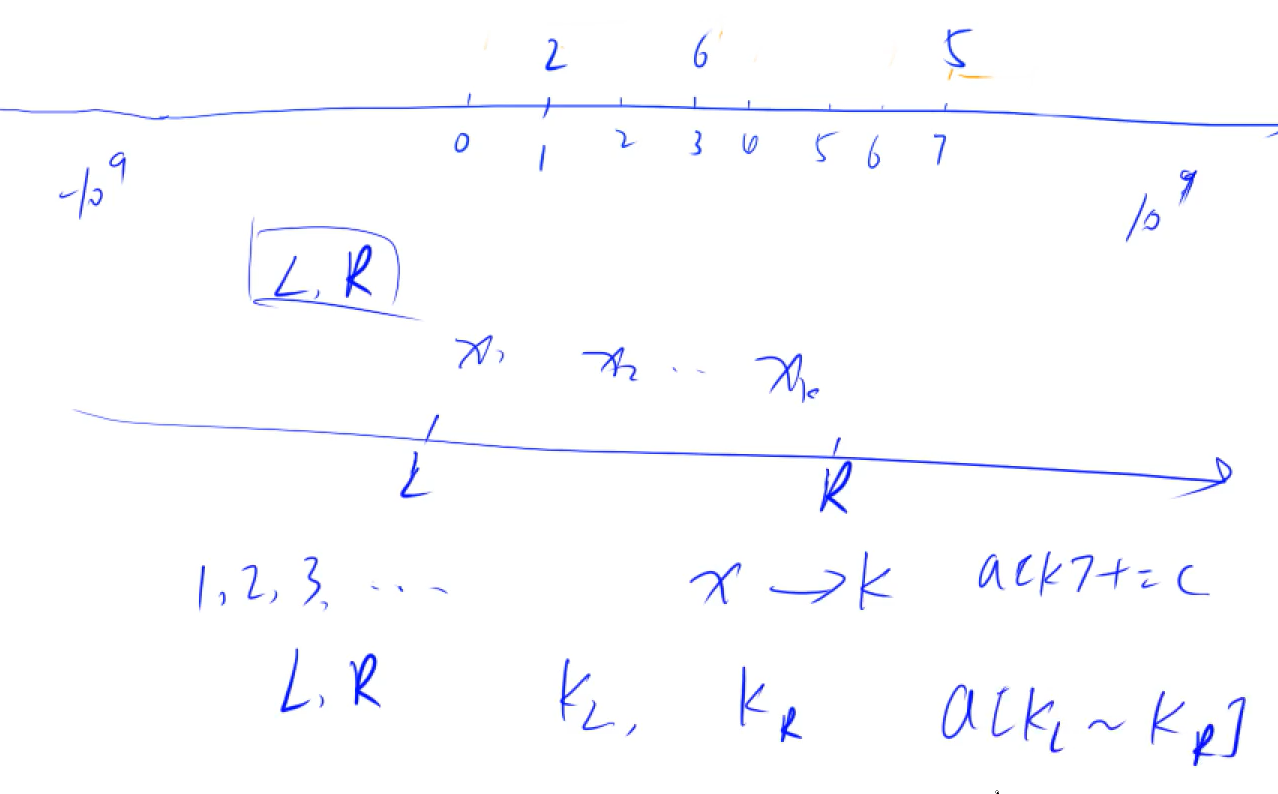 2 6 5
0 1 2 3 4 5 6 7
-10^9 10^9
L, R
x₁, x₂ .. xₖ
L R
1, 2, 3, ... x → k a[k]+=c
L, R k_L, k_R a[k_L ~ k_R]